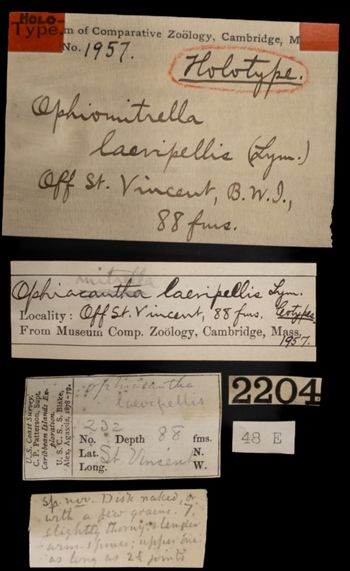 HOLO-
Type.
m of Comparative Zoölogy, Cambridge, M
No. 1957.
Holotype.
Ophiomitrella
laevipellis (Lym.)
Off St. Vincent, B.W.I.,
88 fms.
mitrella
Ophiacantha laevipellis Lym.
Locality: Off St. Vincent, 88 fms. Cotypes.
From Museum Comp. Zoölogy, Cambridge, Mass.
1957.
U. S. Coast Survey,
C. P. Patterson, Supt.
Caribbean Islands Ex-
ploration.
U. S. C. S. S. Blake,
Alex. Agassiz, 1878-79.
Ophiacantha
laevipellis
232
No. Depth 88 fms.
Lat. N.
St Vincent
Long. W.
2204
48 E
sp. nov. Disk naked, or
with a few grains. 7
slightly thorny slender
arm-spines; upper one
as long as 2½ joints